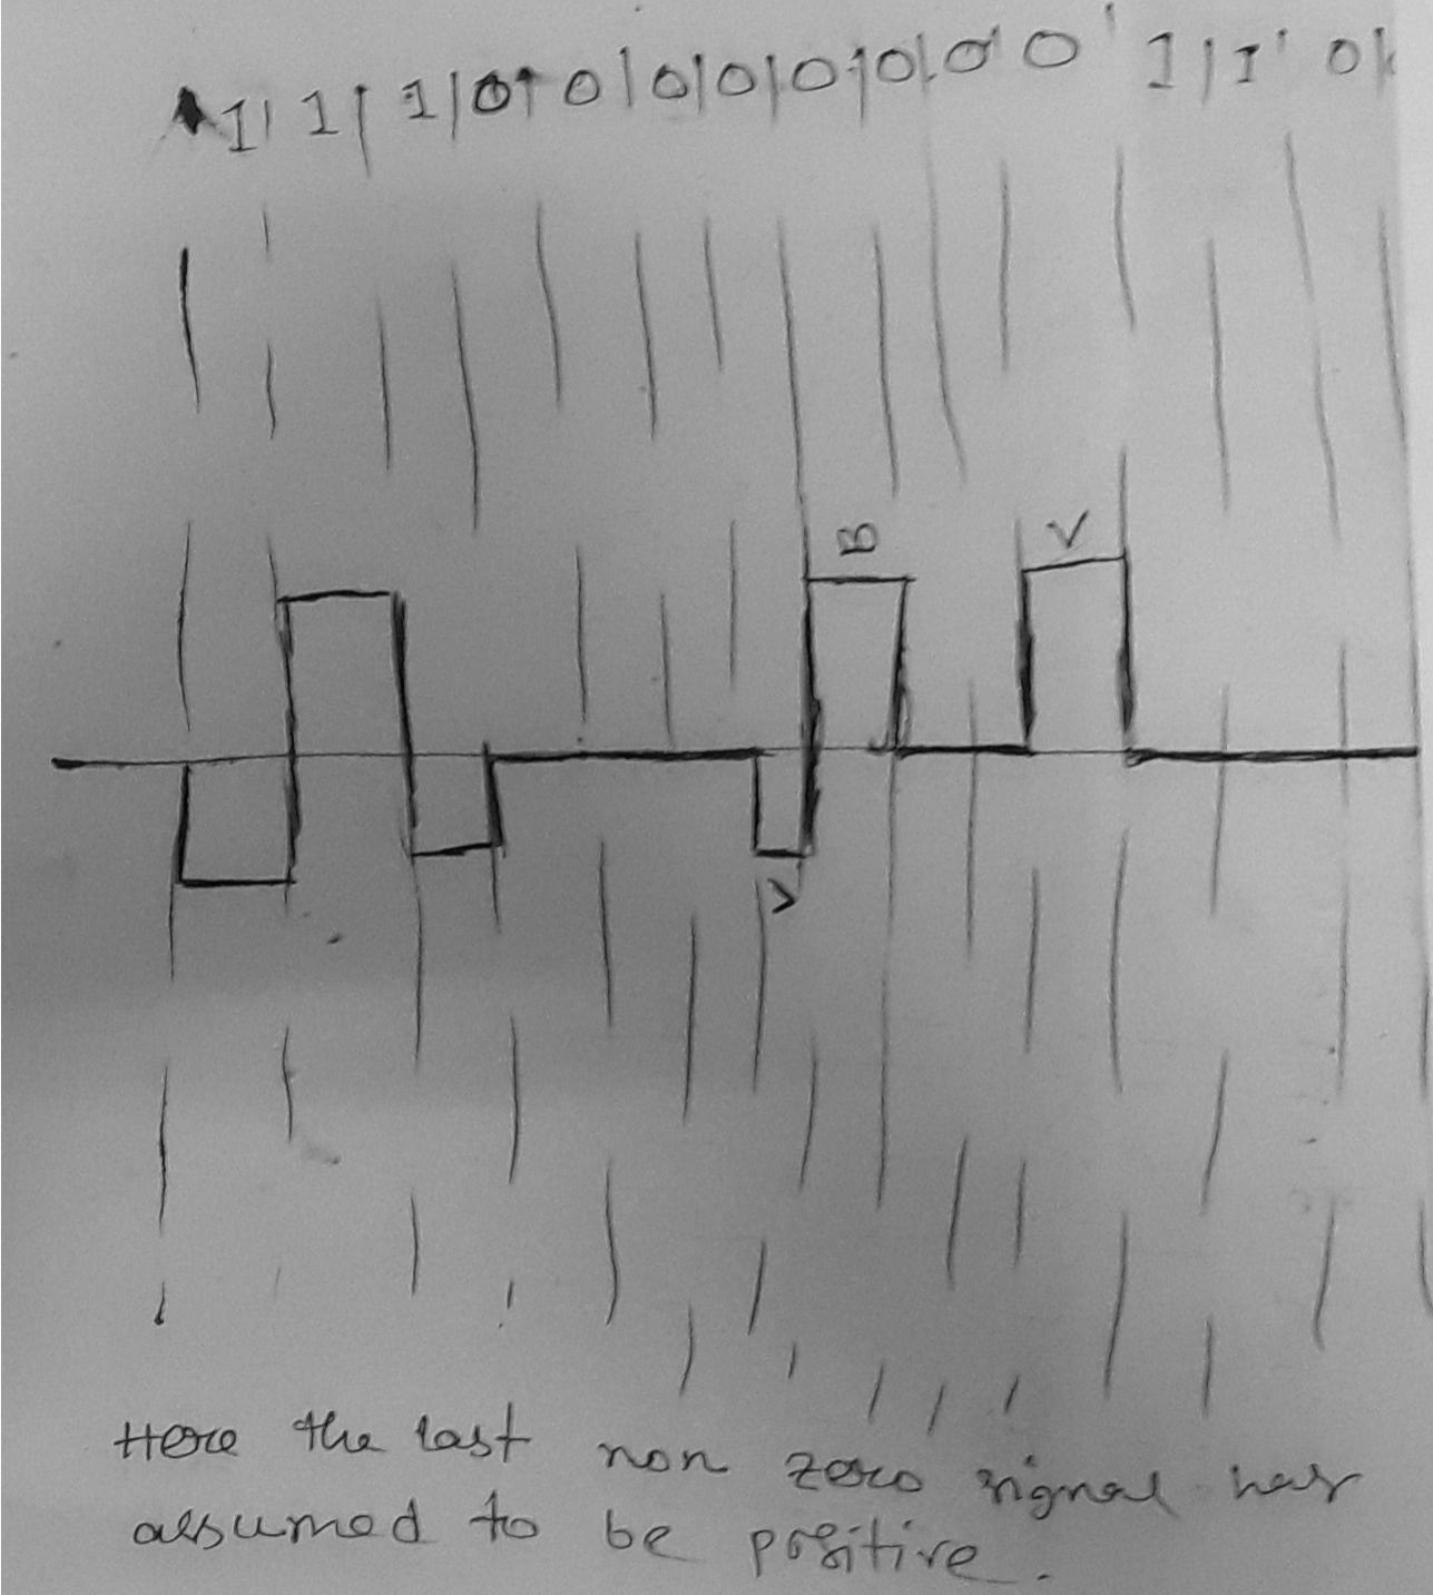 1 | 1 | 1 | 0 | 0 | 0 | 0 | 0 | 0 | 0 0 | 1 | 1 | 0 |
B
V
V
Here the last non zero signal has
assumed to be positive.